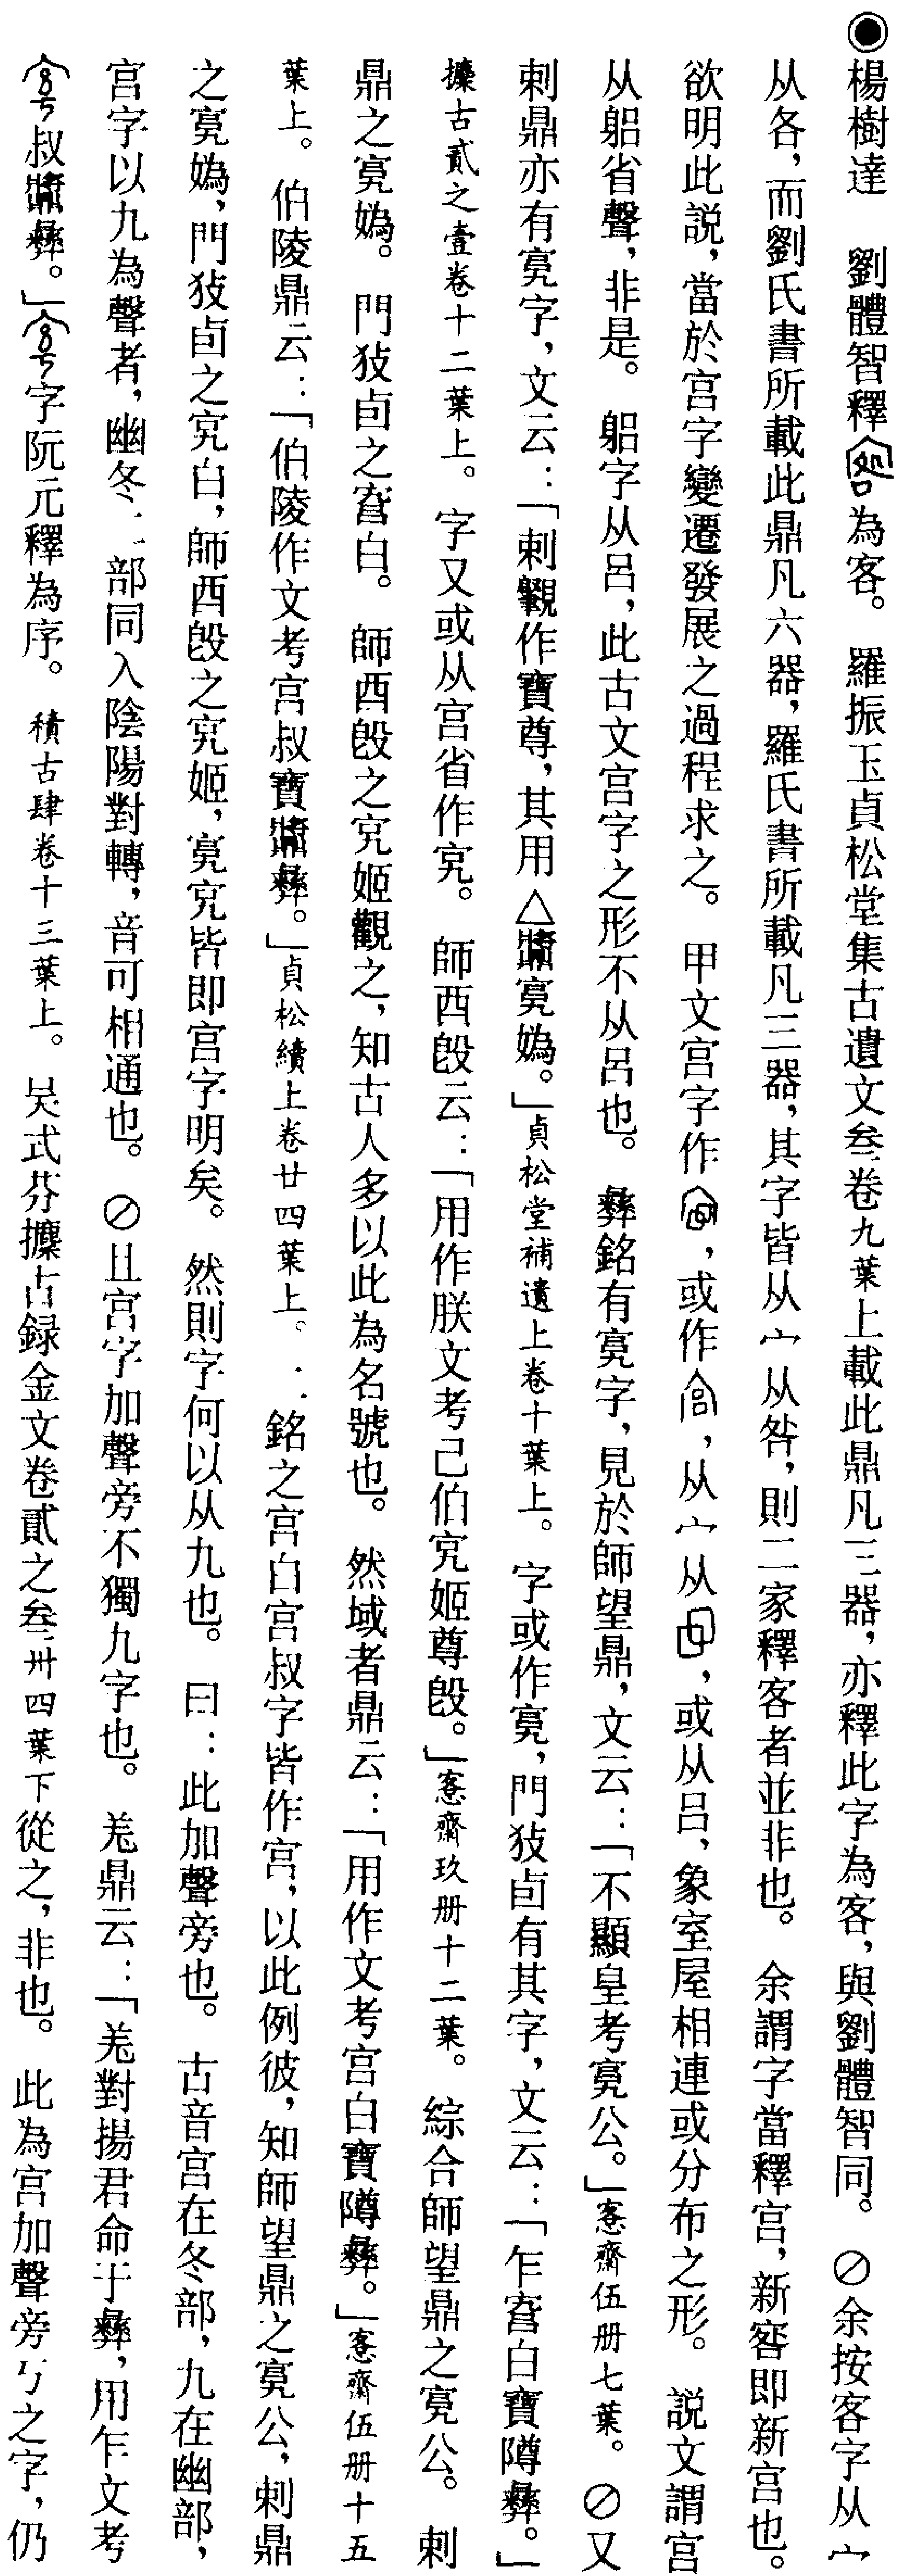 ◉楊樹達　劉體智釋為客。　羅振玉貞松堂集古遺文叁卷九葉上載此鼎凡三器，亦釋此字為客，與劉體智同。　⊘余按客字从宀
从各，而劉氏書所載此鼎凡六器，羅氏書所載凡三器，其字皆从宀从咎，則二家釋客者並非也。　余謂字當釋宮，新即新宮也。
欲明此説，當於宮字變遷發展之過程求之。　甲文宮字作，或作，从宀从，或从呂，象室屋相連或分布之形。　説文謂宮
从躳省聲，非是。　躳字从呂，此古文宮字之形不从呂也。　彝銘有字，見於師望鼎，文云：「不顯皇考公。」愙齋伍册七葉。　⊘又
剌鼎亦有字，文云：「剌作寶尊，其用△媯。」貞松堂補遺上卷十葉上。　字或作，門卣有其字，文云：「乍白寶障彝。」
攈古貳之壹卷十二葉上。　字又或从宮省作宄。　師酉𣪘云：「用作朕文考己伯宄姬尊𣪘。」愙齋玖册十二葉。　綜合師望鼎之公。　剌
鼎之媯。　門卣之白。　師酉𣪘之宄姬觀之，知古人多以此為名號也。　然域者鼎云：「用作文考宮白寶障彝。」愙齋伍册十五
葉上。　伯陵鼎云：「伯陵作文考宮叔寶彝。」貞松續上卷廿四葉上。　二銘之宮白宮叔字皆作宮，以此例彼，知師望鼎之公，剌鼎
之媯，門卣之宄白，師酉𣪘之宄姬，宄皆即宮字明矣。　然則字何以从九也。　曰：此加聲旁也。　古音宮在冬部，九在幽部，
宮字以九為聲者，幽冬二部同入陰陽對轉，音可相通也。　⊘且宮字加聲旁不獨九字也。　羌鼎云：「羌對揚君命于彝，用乍文考
叔彝。」字阮元釋為序。　積古肆卷十三葉上。　吴式芬攈古録金文卷貳之叁卅四葉下從之，非也。　此為宮加聲旁丂之字，仍